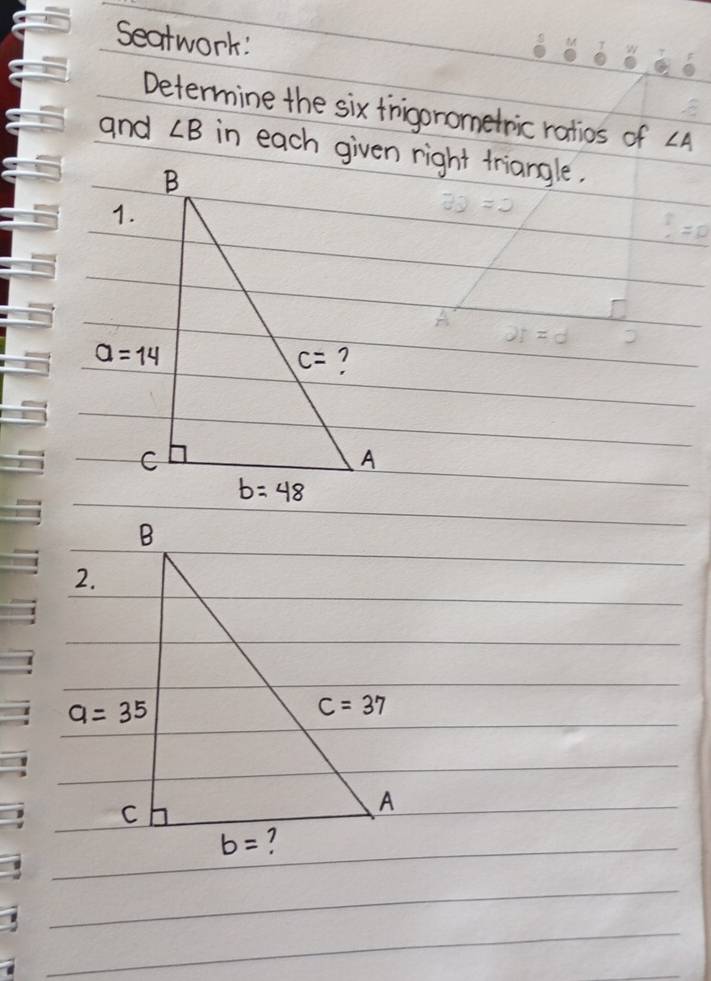 S M T W T F
Seatwork:
Determine the six trigonometric ratios of ∠A
and ∠B in each given right triangle.
B
1.
a=14
c=?
C
A
b=48
B
2.
a=35
c=37
C
A
b=?